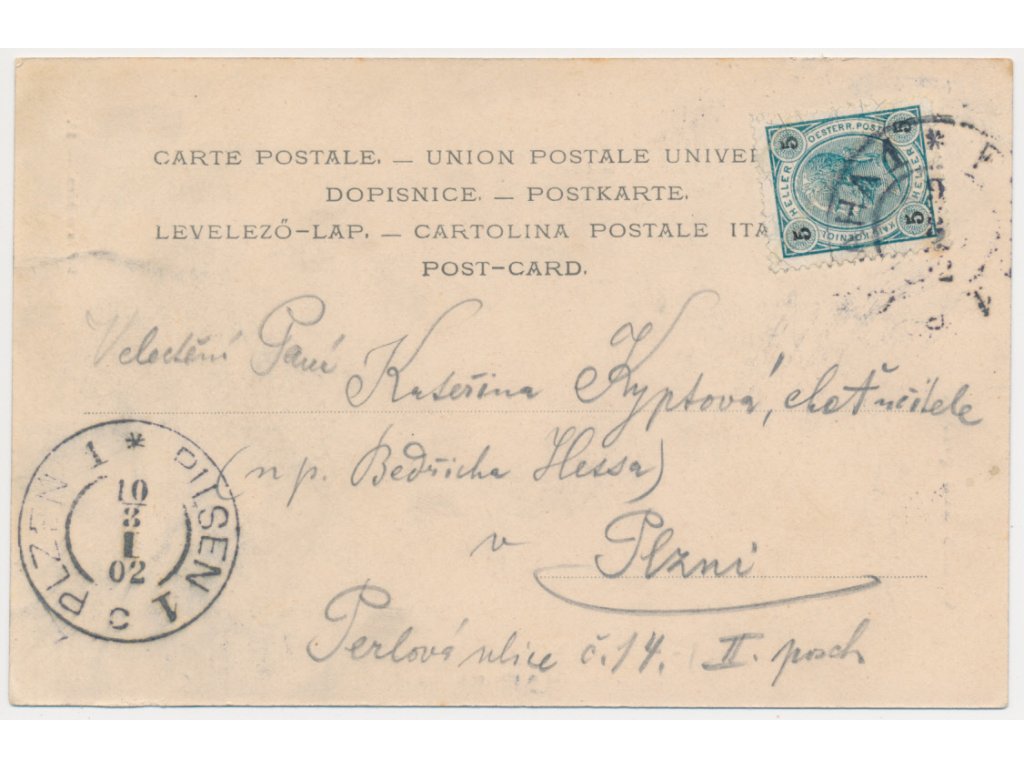 CARTE POSTALE. — UNION POSTALE UNIVER
DOPISNICE. — POSTKARTE.
LEVELEZŐ-LAP. — CARTOLINA POSTALE ITA
POST-CARD.
5 OESTERR. POST 5
HELLER HELLER
5 KAIS. KOENIGL. 5
Veloctění Paní
Kateřina Kyptová, choť učitele
(n p. Bedřicha Hessa)
v Plzni
Perlová ulice č. 14. II. posch
PLZEN 1 * PILSEN 1
10
3
1
02
C